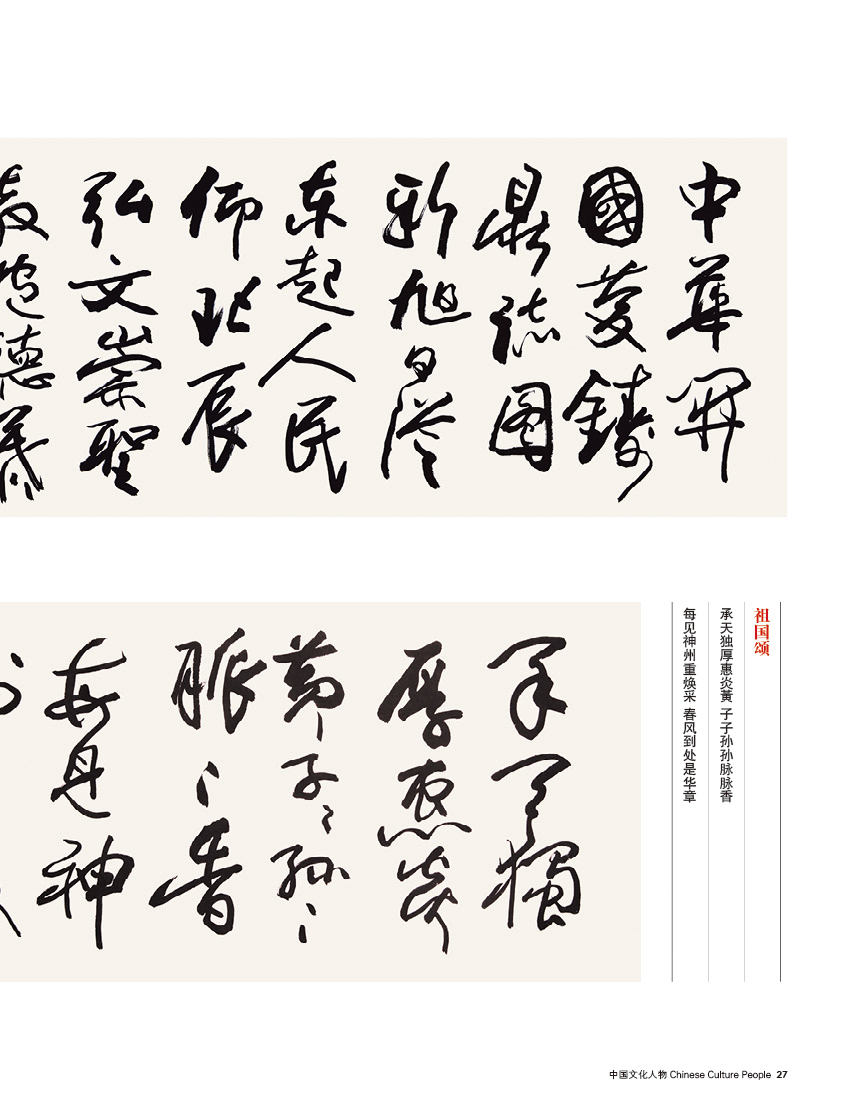 中華開
國夢鑄
鼎誌图
新旭日從
东起人民
仰北辰
弘文崇聖
德
祖国颂
承天独厚惠炎黄 子子孙孙脉脉香
每见神州重焕采 春风到处是华章
承天獨
厚惠炎
黄子々孙々
脈々香
每見神
中国文化人物 Chinese Culture People 27